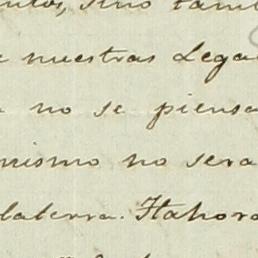 ntos, sino tamb
e nuestras Lega
no se piensa
mismo no sera
laterra. Hahora